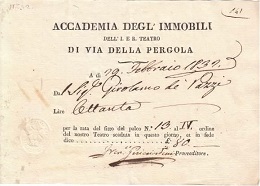 141
ACCADEMIA DEGL' IMMOBILI
DELL' I. E R. TEATRO
DI VIA DELLA PERGOLA
A dì 19. Febbraio 1839.
Da Sig. Girolamo de Pazzi
Lire Ottanta
per la rata del fitto del palco N.° 13 al IV. ordine
del nostro Teatro scaduta in questo giorno, ci fa dare
£ 80
Provveditore.